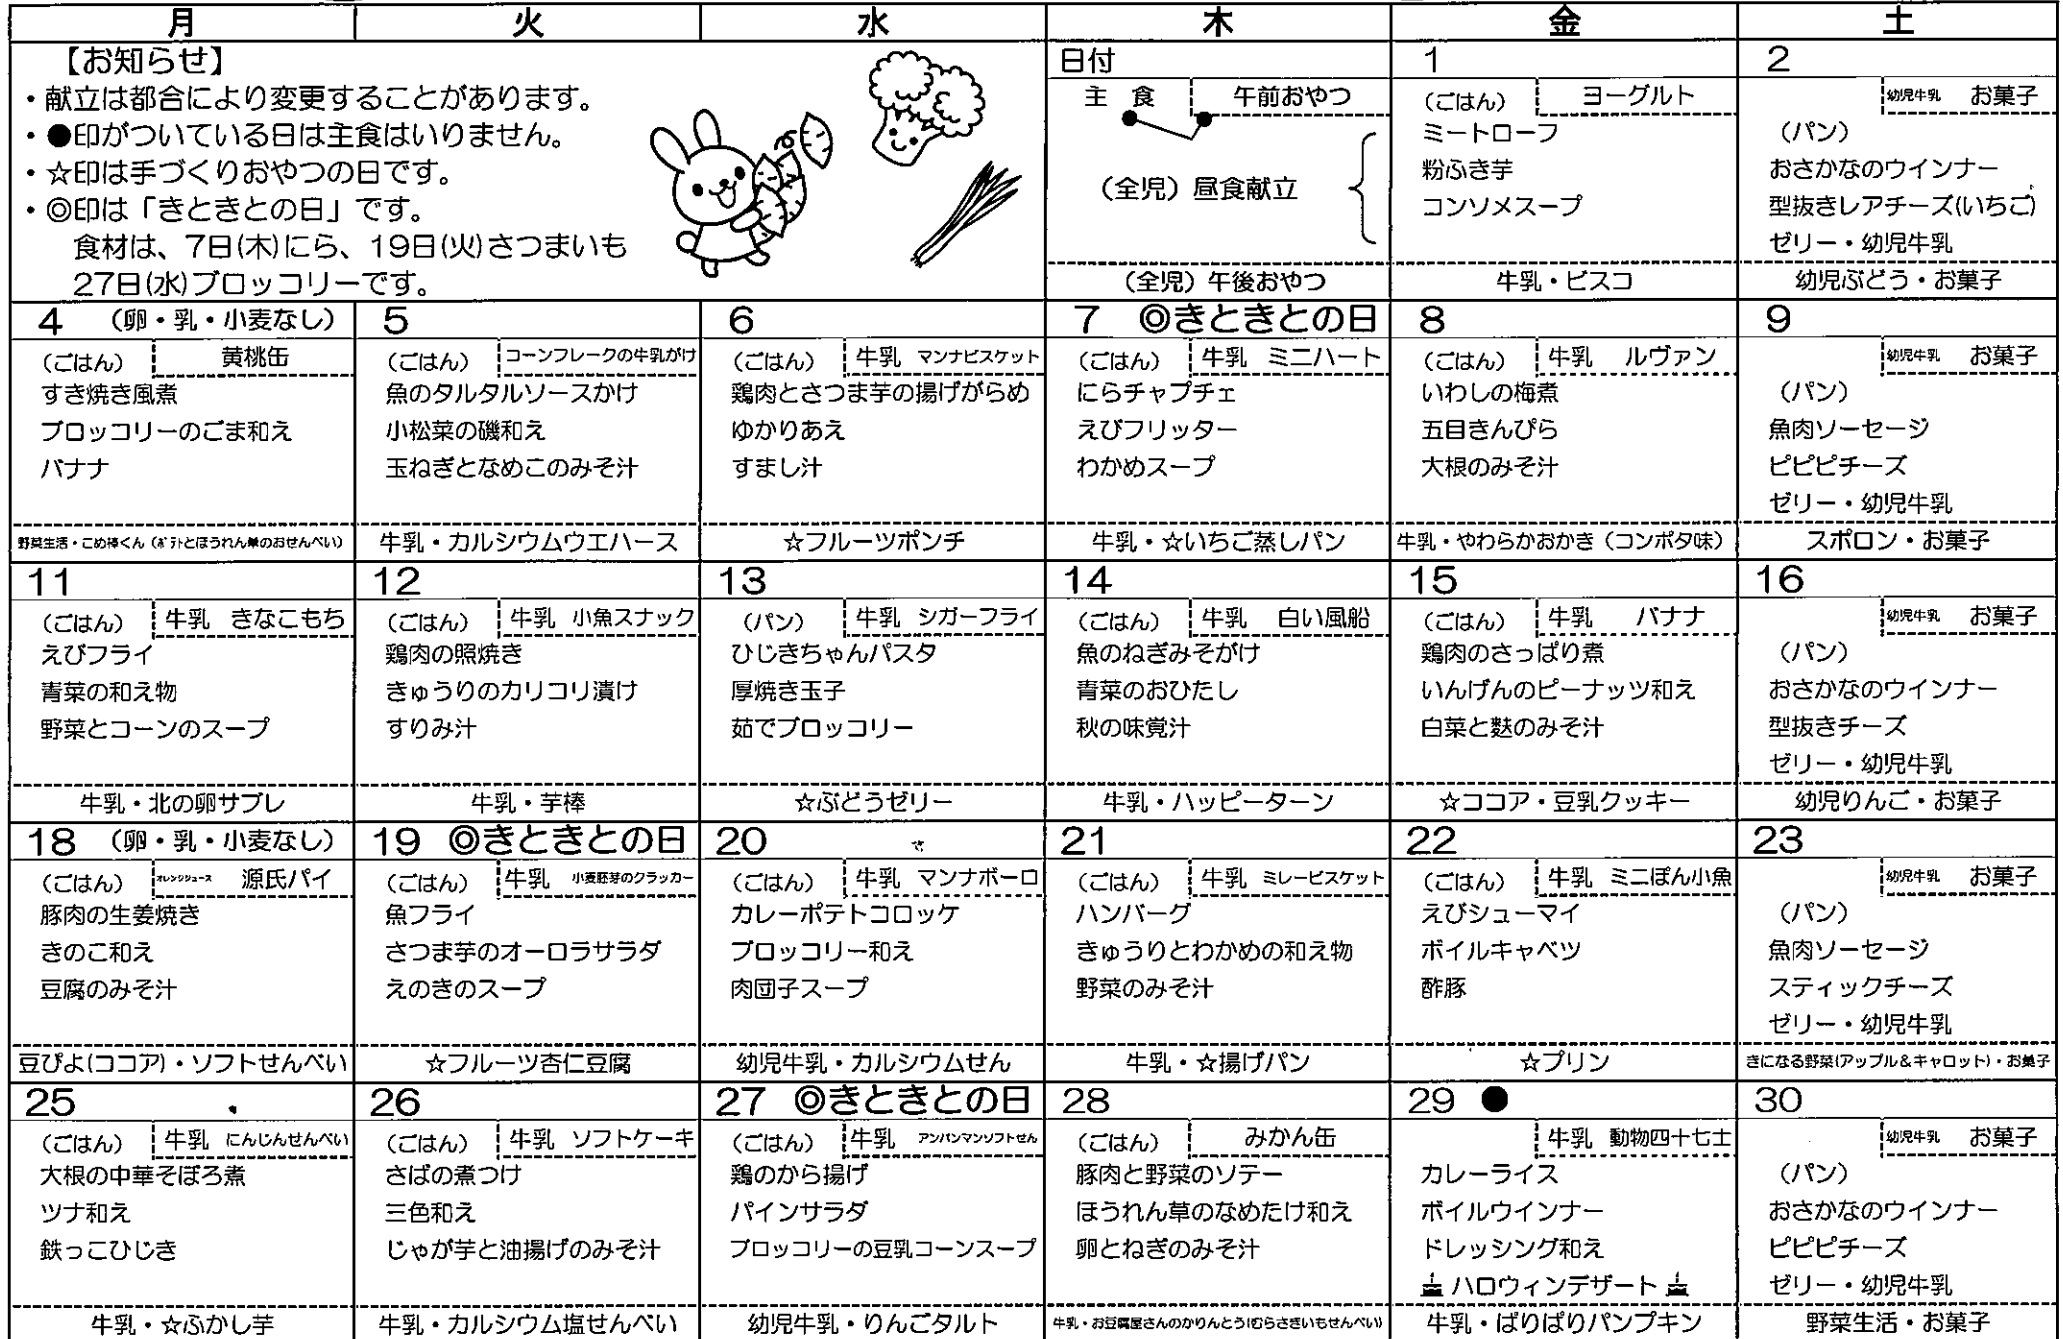 月 火 水 木 金 土
【お知らせ】
・献立は都合により変更することがあります。
・●印がついている日は主食はいりません。
・☆印は手づくりおやつの日です。
・◎印は「きときとの日」です。
食材は、7日(木)にら、19日(火)さつまいも
27日(水)ブロッコリーです。
日付
主 食 午前おやつ
(全児)昼食献立
(全児)午後おやつ
1
(ごはん) ヨーグルト
ミートローフ
粉ふき芋
コンソメスープ
牛乳・ビスコ
2
幼児牛乳 お菓子
(パン)
おさかなのウインナー
型抜きレアチーズ(いちご)
ゼリー・幼児牛乳
幼児ぶどう・お菓子
4 (卵・乳・小麦なし)
(ごはん) 黄桃缶
すき焼き風煮
ブロッコリーのごま和え
バナナ
野菜生活・こめ棒くん(ポテトとほうれん草のおせんべい)
5
(ごはん) コーンフレークの牛乳がけ
魚のタルタルソースかけ
小松菜の磯和え
玉ねぎとなめこのみそ汁
牛乳・カルシウムウエハース
6
(ごはん) 牛乳 マンナビスケット
鶏肉とさつま芋の揚げがらめ
ゆかりあえ
すまし汁
☆フルーツポンチ
7 ◎きときとの日
(ごはん) 牛乳 ミニハート
にらチャプチェ
えびフリッター
わかめスープ
牛乳・☆いちご蒸しパン
8
(ごはん) 牛乳 ルヴァン
いわしの梅煮
五目きんぴら
大根のみそ汁
牛乳・やわらかおかき(コンポタ味)
9
幼児牛乳 お菓子
(パン)
魚肉ソーセージ
ピピピチーズ
ゼリー・幼児牛乳
スポロン・お菓子
11
(ごはん) 牛乳 きなこもち
えびフライ
青菜の和え物
野菜とコーンのスープ
牛乳・北の卵サブレ
12
(ごはん) 牛乳 小魚スナック
鶏肉の照焼き
きゅうりのカリコリ漬け
すりみ汁
牛乳・芋棒
13
(パン) 牛乳 シガーフライ
ひじきちゃんパスタ
厚焼き玉子
茹でブロッコリー
☆ぶどうゼリー
14
(ごはん) 牛乳 白い風船
魚のねぎみそがけ
青菜のおひたし
秋の味覚汁
牛乳・ハッピーターン
15
(ごはん) 牛乳 バナナ
鶏肉のさっぱり煮
いんげんのピーナッツ和え
白菜と麩のみそ汁
☆ココア・豆乳クッキー
16
幼児牛乳 お菓子
(パン)
おさかなのウインナー
型抜きチーズ
ゼリー・幼児牛乳
幼児りんご・お菓子
18 (卵・乳・小麦なし)
(ごはん) オレンジジュース 源氏パイ
豚肉の生姜焼き
きのこ和え
豆腐のみそ汁
豆ぴよ(ココア)・ソフトせんべい
19 ◎きときとの日
(ごはん) 牛乳 小麦胚芽のクラッカー
魚フライ
さつま芋のオーロラサラダ
えのきのスープ
☆フルーツ杏仁豆腐
20
(ごはん) 牛乳 マンナボーロ
カレーポテトコロッケ
ブロッコリー和え
肉団子スープ
幼児牛乳・カルシウムせん
21
(ごはん) 牛乳 ミレービスケット
ハンバーグ
きゅうりとわかめの和え物
野菜のみそ汁
牛乳・☆揚げパン
22
(ごはん) 牛乳 ミニぽん小魚
えびシューマイ
ボイルキャベツ
酢豚
☆プリン
23
幼児牛乳 お菓子
(パン)
魚肉ソーセージ
スティックチーズ
ゼリー・幼児牛乳
きになる野菜(アップル&キャロット)・お菓子
25
(ごはん) 牛乳 にんじんせんべい
大根の中華そぼろ煮
ツナ和え
鉄っこひじき
牛乳・☆ふかし芋
26
(ごはん) 牛乳 ソフトケーキ
さばの煮つけ
三色和え
じゃが芋と油揚げのみそ汁
牛乳・カルシウム塩せんべい
27 ◎きときとの日
(ごはん) 牛乳 アンパンマンソフトせん
鶏のから揚げ
パインサラダ
ブロッコリーの豆乳コーンスープ
幼児牛乳・りんごタルト
28
(ごはん) みかん缶
豚肉と野菜のソテー
ほうれん草のなめたけ和え
卵とねぎのみそ汁
牛乳・お豆腐屋さんのかりんとう(むらさきいもせんべい)
29 ●
牛乳 動物四十七士
カレーライス
ボイルウインナー
ドレッシング和え
ハロウィンデザート
牛乳・ぱりぱりパンプキン
30
幼児牛乳 お菓子
(パン)
おさかなのウインナー
ピピピチーズ
ゼリー・幼児牛乳
野菜生活・お菓子